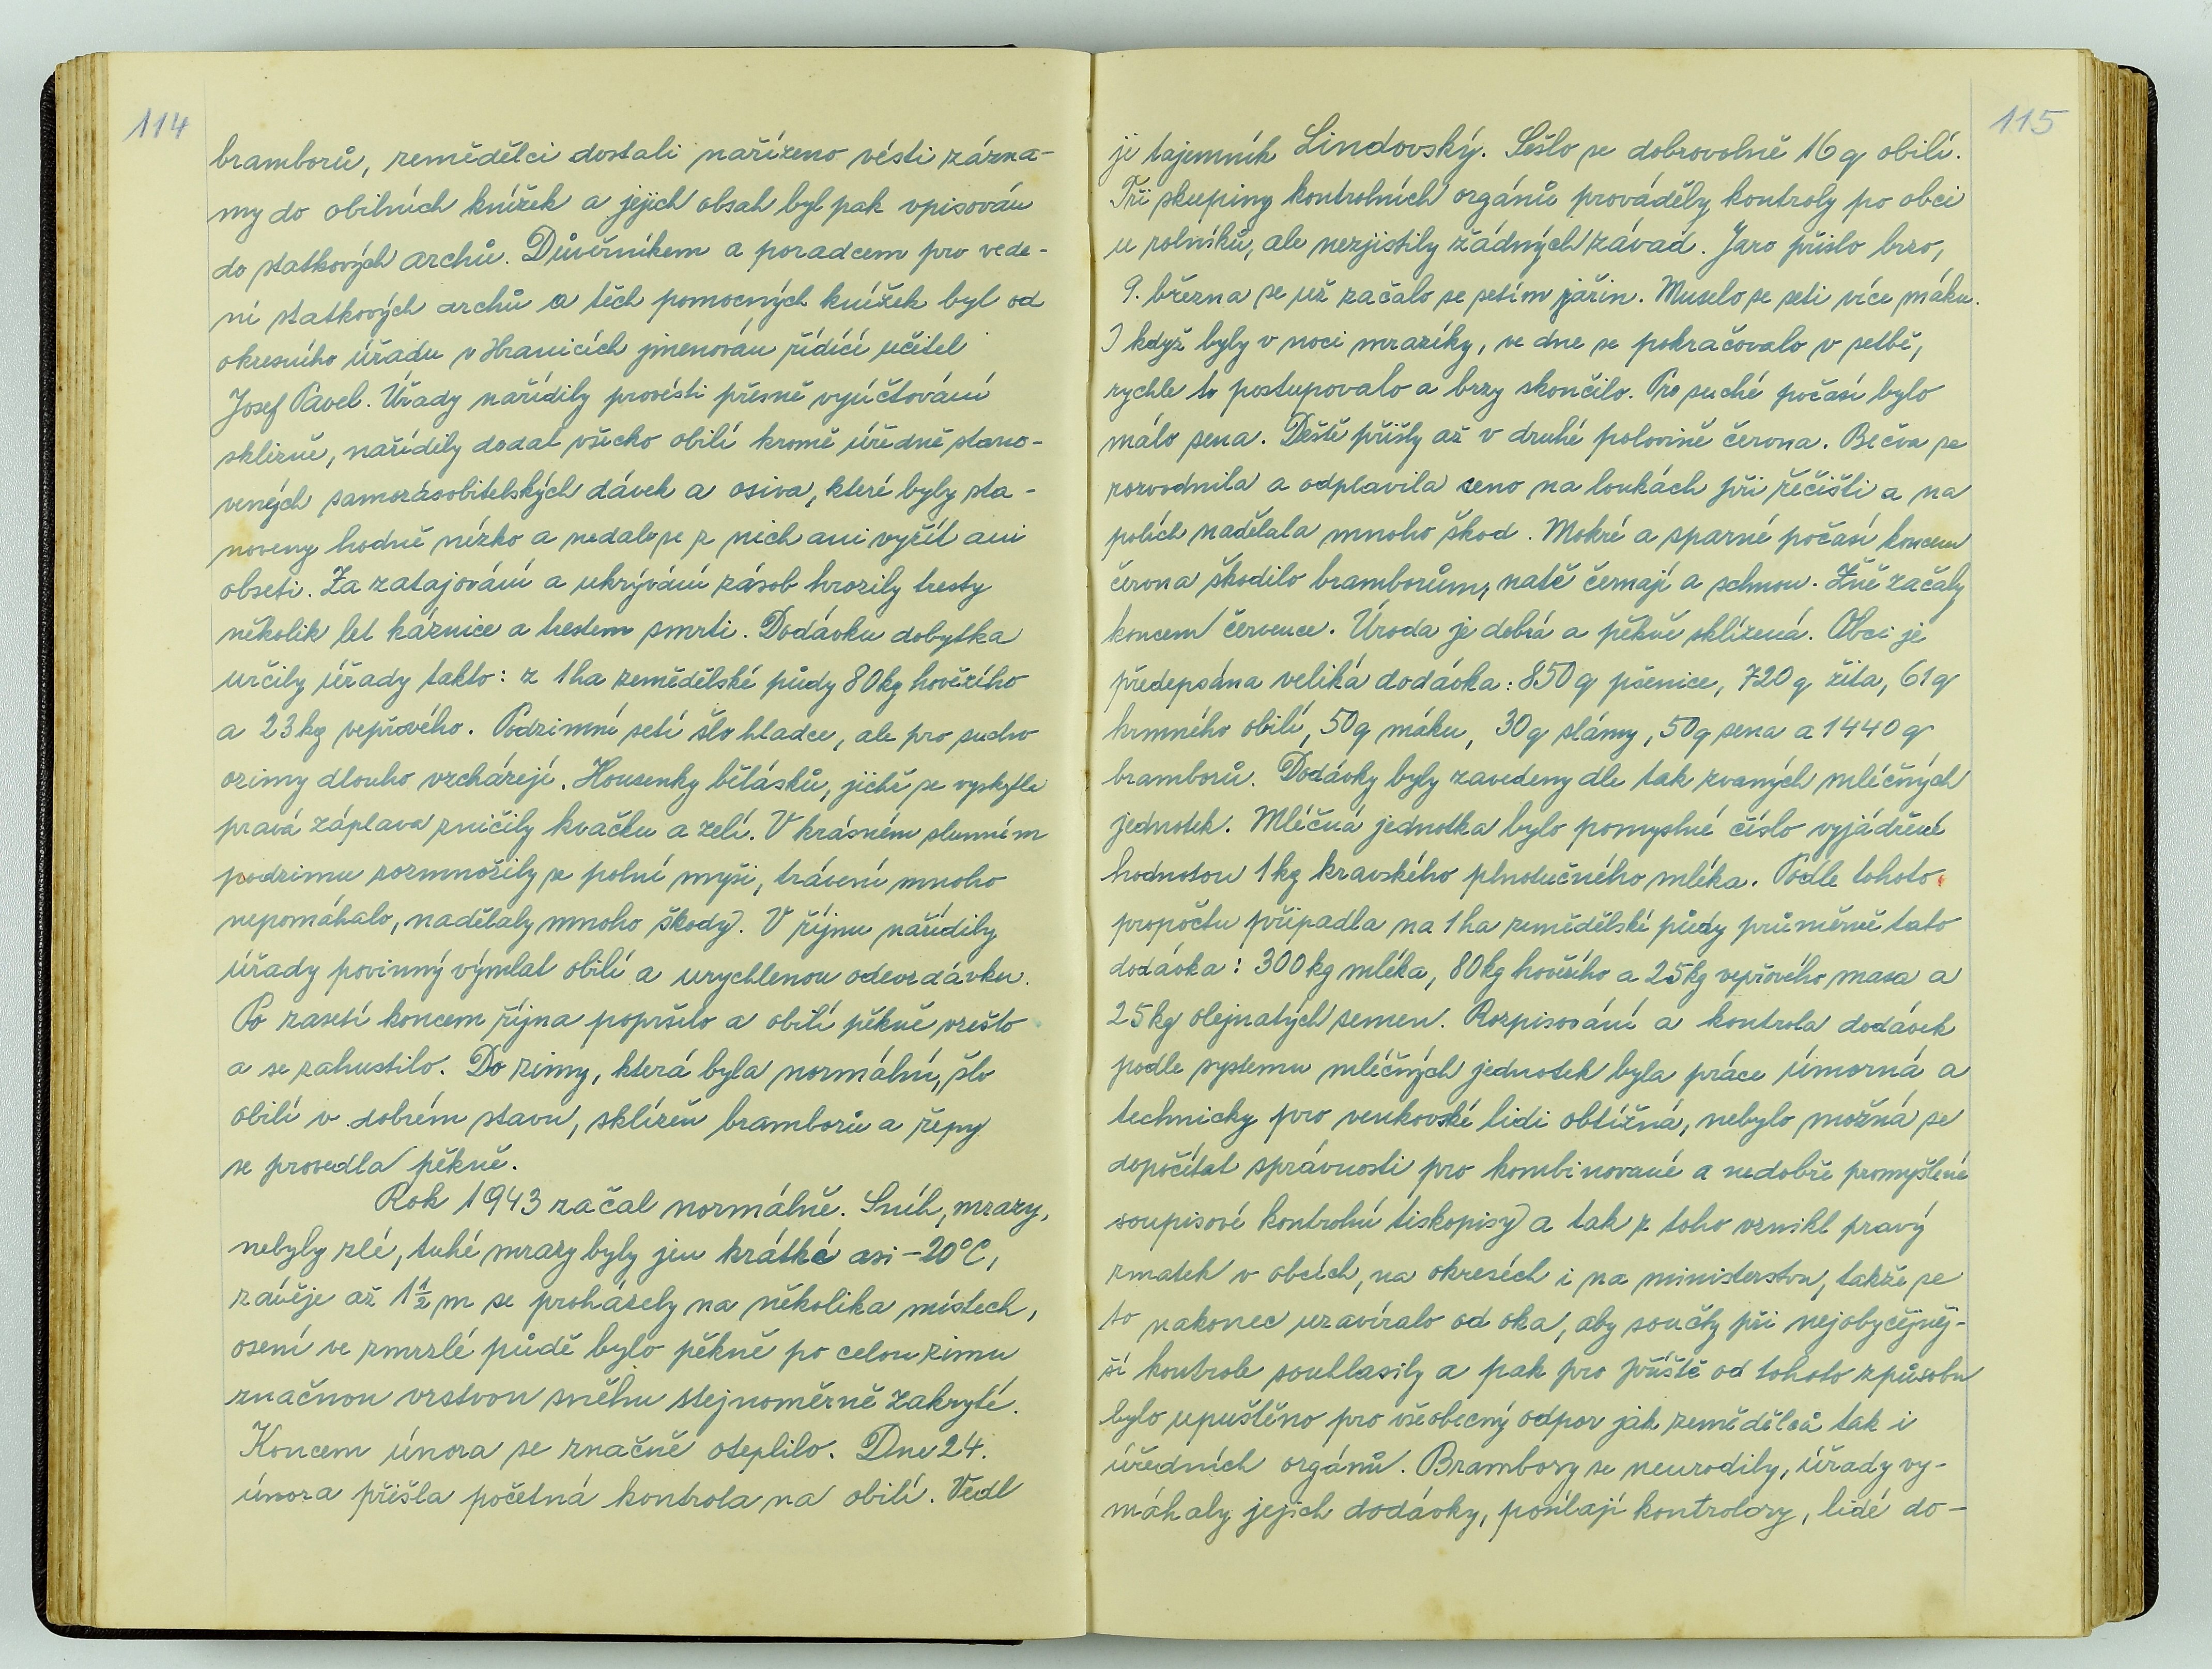 114
bramborů, zemědělci dostali nařízeno vésti zázna-
my do obilních knížek a jejich obsah byl pak vpisován
do statkových archů. Důvěrníkem a poradcem pro vede-
ní statkových archů a těch pomocných knížek byl od
okresního úřadu v Hranicích jmenován řídící učitel
Josef Pavel. Úřady nařídily provésti přesně vyúčtování
sklizně, nařídily dodat všecko obilí kromě úředně stano-
vených samozásobitelských dávek a osiva, které byly sta-
noveny hodně nízko a nedalo se z nich ani vyžít ani
obseti. Za zatajování a ukrývání zásob hrozily tresty
několik let káznice a trestem smrti. Dodávku dobytka
určily úřady takto: z 1 ha zemědělské půdy 80 kg hovězího
a 23 kg vepřového. Podzimní setí šlo hladce, ale pro sucho
ozimy dlouho vzcházejí. Housenky bělásků, jichž se vyskytla
pravá záplava zničily kvačku a zelí. V krásném slunném
podzimu rozmnožily se polní myši, trávení mnoho
nepomáhalo, nadělaly mnoho škody. V říjnu nařídily
úřady povinný výmlat obilí a urychlenou odevzdávku.
Po zasetí koncem října popršelo a obilí pěkně vzešlo
a se zahustilo. Do zimy, která byla normální, šlo
obilí v dobrém stavu, sklizeň bramborů a řepy
se provedla pěkně.
Rok 1943 začal normálně. Sníh, mrazy,
nebyly zlé, tuhé mrazy byly jen krátké asi -20°C,
závěje až 1½ m se proházely na několika místech,
osení ve zmrzlé půdě bylo pěkně po celou zimu
značnou vrstvou sněhu stejnoměrně zakryté.
Koncem února se značně oteplilo. Dne 24.
února přišla početná kontrola na obilí. Vedl
115
ji tajemník Lindovský. Sešlo se dobrovolně 16 q obilí.
Tři skupiny kontrolních orgánů prováděly kontroly po obci
u rolníků, ale nezjistily žádných závad. Jaro přišlo brzo,
9. března se už začalo se setím jařin. Muselo se seti více máku.
I když byly v noci mrazíky, ve dne se pokračovalo v setbě,
rychle to postupovalo a brzy skončilo. Pro suché počasí bylo
málo sena. Deště přišly až v druhé polovině června. Bečva se
rozvodnila a odplavila seno na loukách při řečišti a na
polích nadělala mnoho škod. Mokré a sparné počasí koncem
června škodilo bramborům, natě černají a schnou. Žně začaly
koncem července. Úroda je dobrá a pěkně sklízená. Obci je
předepsána veliká dodávka: 850 q pšenice, 720 q žita, 61 q
krmného obilí, 50 q máku, 30 q slámy, 50 q sena a 1440 q
bramborů. Dodávky byly zavedeny dle tak zvaných mléčných
jednotek. Mléčná jednotka bylo pomyslné číslo vyjádřené
hodnotou 1 kg kravského plnotučného mléka. Podle tohoto
propočtu připadla na 1 ha zemědělské půdy průměrně tato
dodávka: 300 kg mléka, 80 kg hovězího a 25 kg vepřového masa a
25 kg olejnatých semen. Rozpisování a kontrola dodávek
podle systemu mléčných jednotek byla práce úmorná a
technicky pro venkovské lidi obtížná, nebylo možná se
dopočítat správnosti pro kombinované a nedobře promyšlené
soupisové kontrolní tiskopisy a tak z toho vznikl pravý
zmatek v obcích, na okresích i na ministerstvu, takže se
to nakonec uzavíralo od oka, aby součty při nejobyčejněj-
ší kontrole souhlasily a pak pro příště od tohoto způsobu
bylo upuštěno pro všeobecný odpor jak zemědělců tak i
úředních orgánů. Brambory se neurodily, úřady vy-
máhaly jejich dodávky, posílají kontrolory, lidé do-